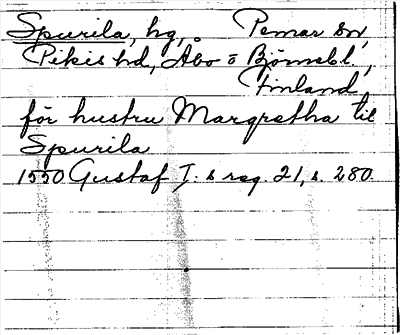 Spurila, hg, Pemar sn,
Pikis hd, Åbo o Björneb l.,
Finland
för hustru Margretha til
Spurila
1550 Gustaf I:s reg. 21, s. 280.